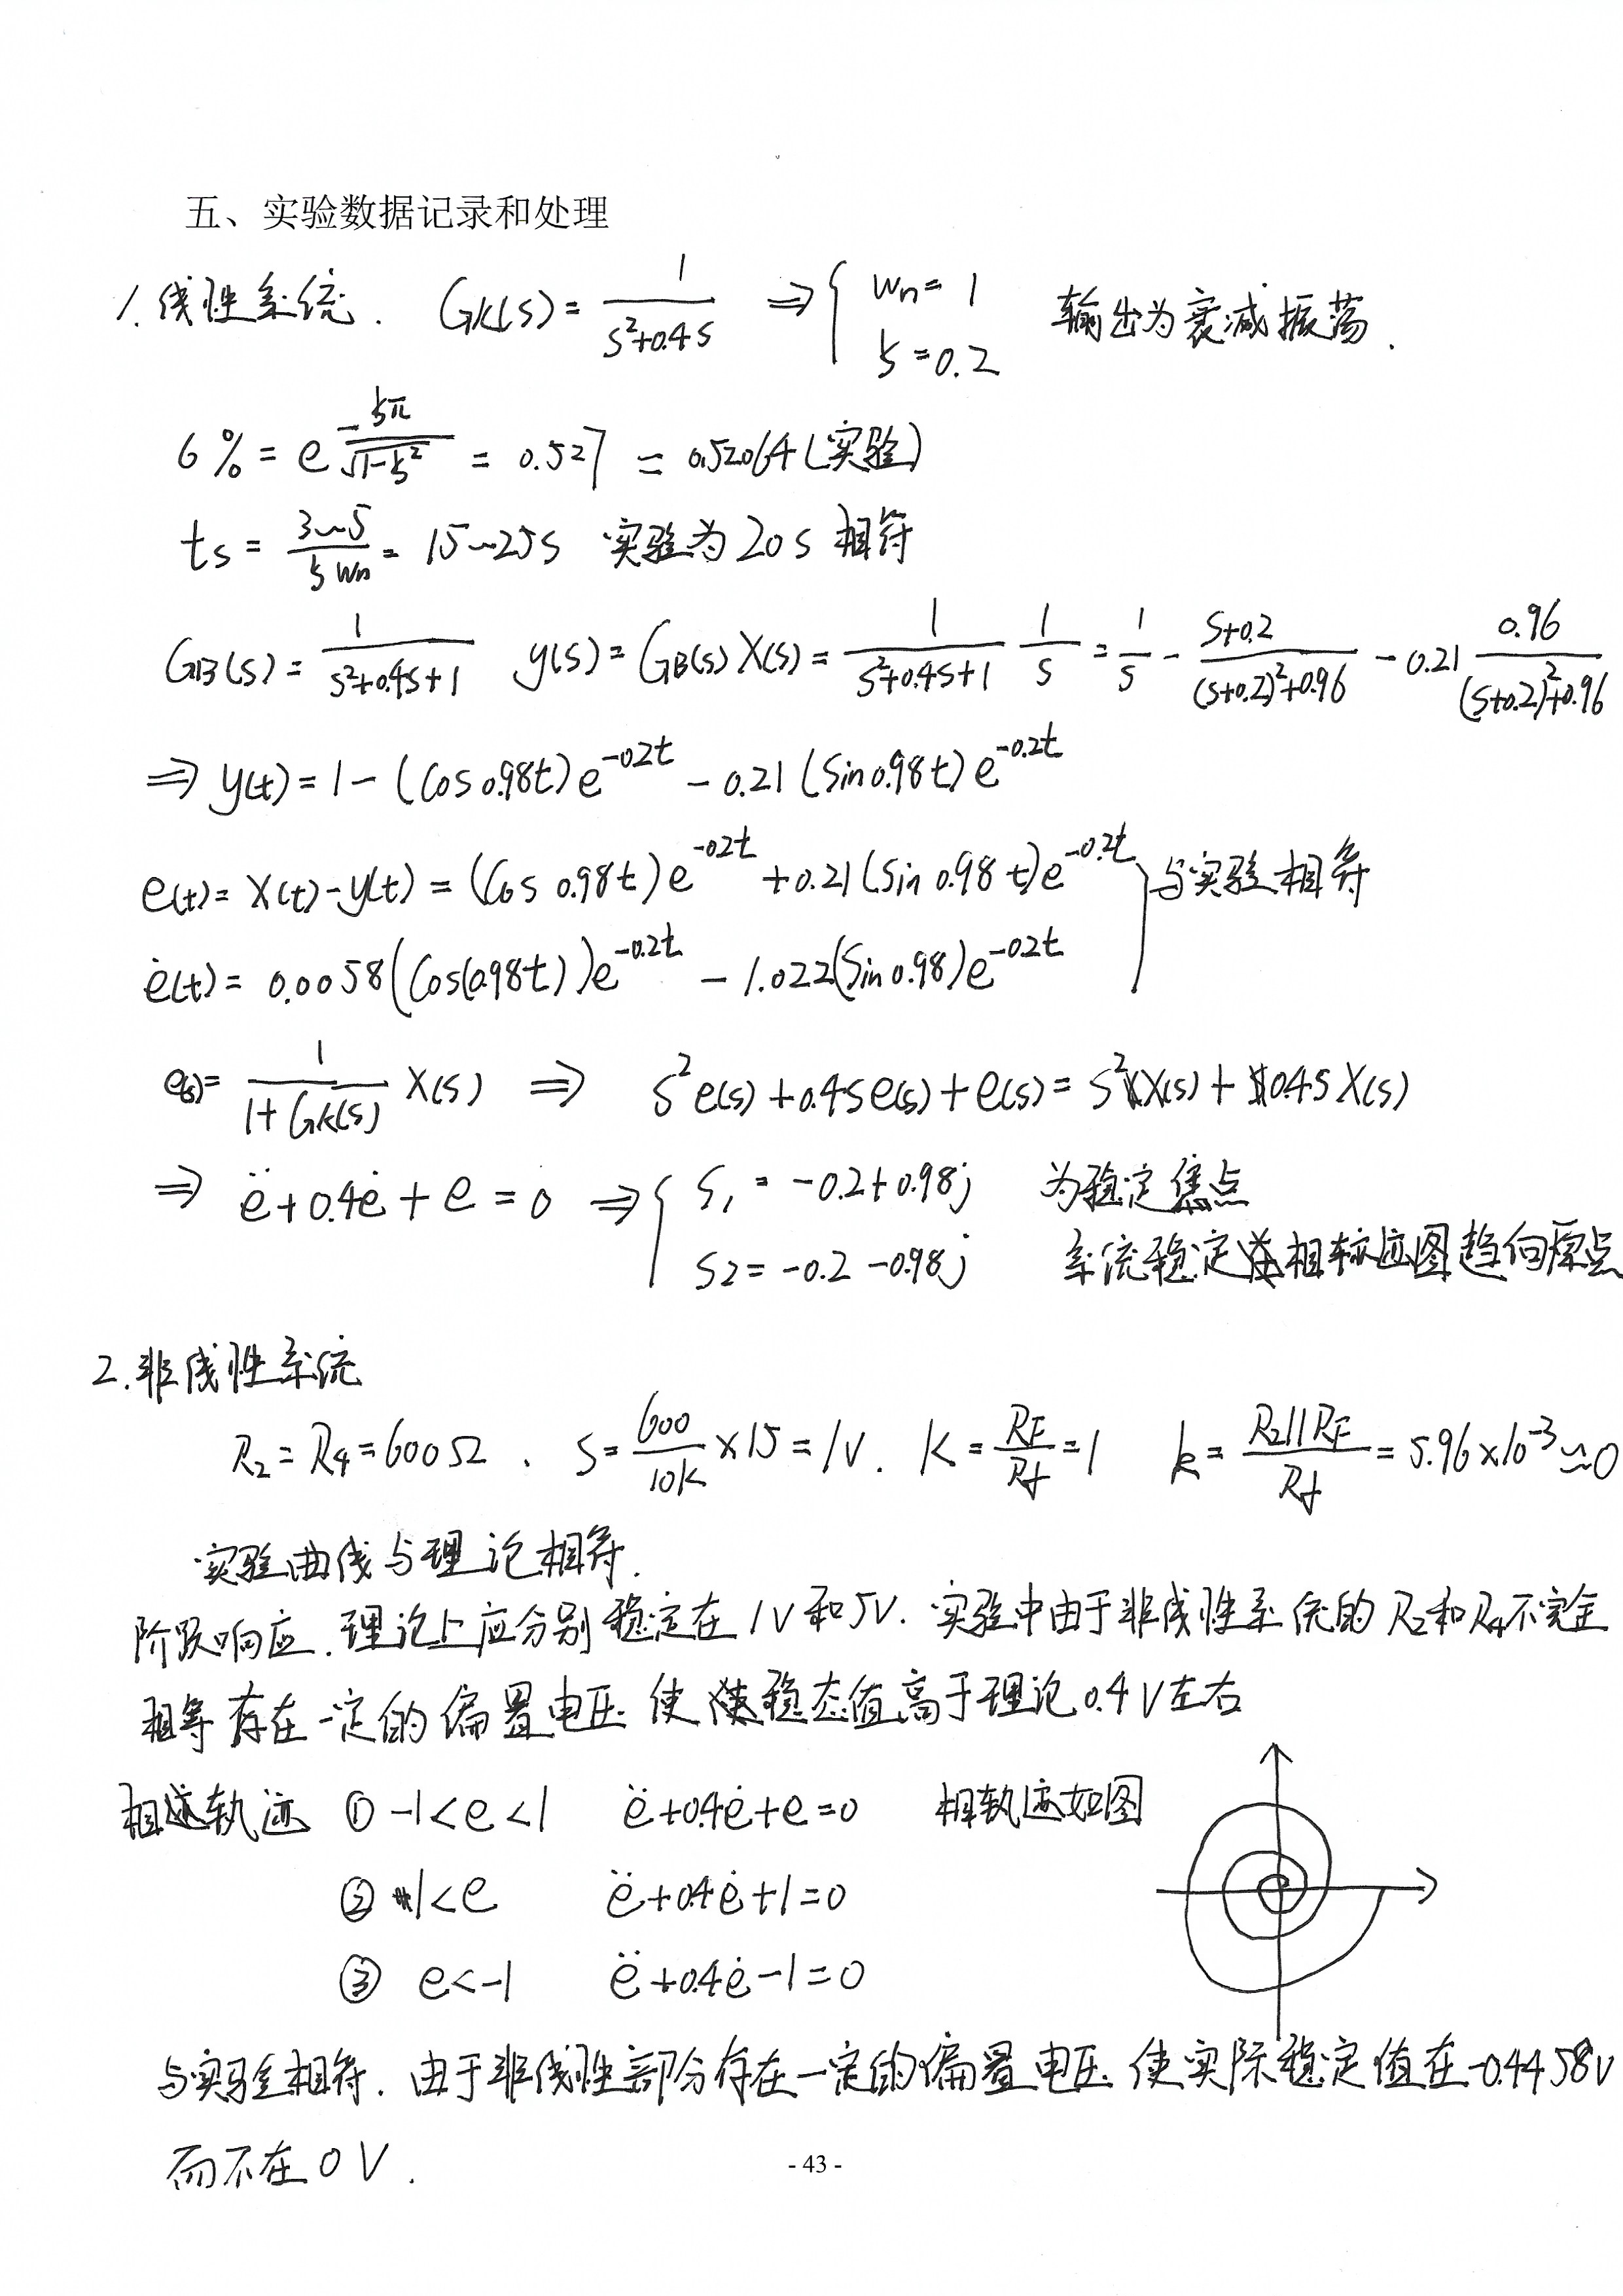 五、实验数据记录和处理
1. 线性系统. GK(s) = 1/(s²+0.4s) ⇒ { Wn = 1 ξ = 0.2 输出为衰减振荡.
б% = e^(-ξπ/√(1-ξ²)) = 0.527 = 0.52064 (实验)
ts = (3~5)/(ξWn) = 15~25s 实验为20s 相符
GB(s) = 1/(s²+0.4s+1) y(s) = GB(s) X(s) = 1/(s²+0.4s+1) 1/s = 1/s - (s+0.2)/((s+0.2)²+0.96) - 0.21 0.96/((s+0.2)²+0.96)
⇒ y(t) = 1 - (cos0.98t)e^(-0.2t) - 0.21(sin0.98t)e^(-0.2t)
e(t) = X(t) - y(t) = (cos 0.98t)e^(-0.2t) + 0.21(sin 0.98t)e^(-0.2t) } 与实验相符
ė(t) = 0.0058(cos(0.98t))e^(-0.2t) - 1.022(sin0.98)e^(-0.2t)
e(s) = 1/(1+GK(s)) X(s) ⇒ s²e(s) + 0.4se(s) + e(s) = s²X(s) + 0.4sX(s)
⇒ ë + 0.4ė + e = 0 ⇒ { s₁ = -0.2+0.98j 为稳定焦点
s2 = -0.2-0.98j 系统稳定 相轨迹图趋向原点
2. 非线性系统
R₂ = R₄ = 600Ω . S = 600/10K × 15 = 1V. K = RF/Rf = 1 k = R2||RF/Rf = 5.96×10⁻³ ≈ 0
实验曲线与理论相符.
阶跃响应. 理论上应分别稳定在1V和5V. 实验中由于非线性系统的R₂和R₄不完全
相等 存在一定的偏置电压 使稳态值高于理论0.4V左右
相轨迹 ① -1<e<1 ë+0.4ė+e=0 相轨迹如图
② 1<e ë+0.4ė+1=0
③ e<-1 ë+0.4ė-1=0
与实验相符. 由于非线性部分存在一定的偏置电压 使实际稳定值在-0.4458V
而不在0V.
- 43 -